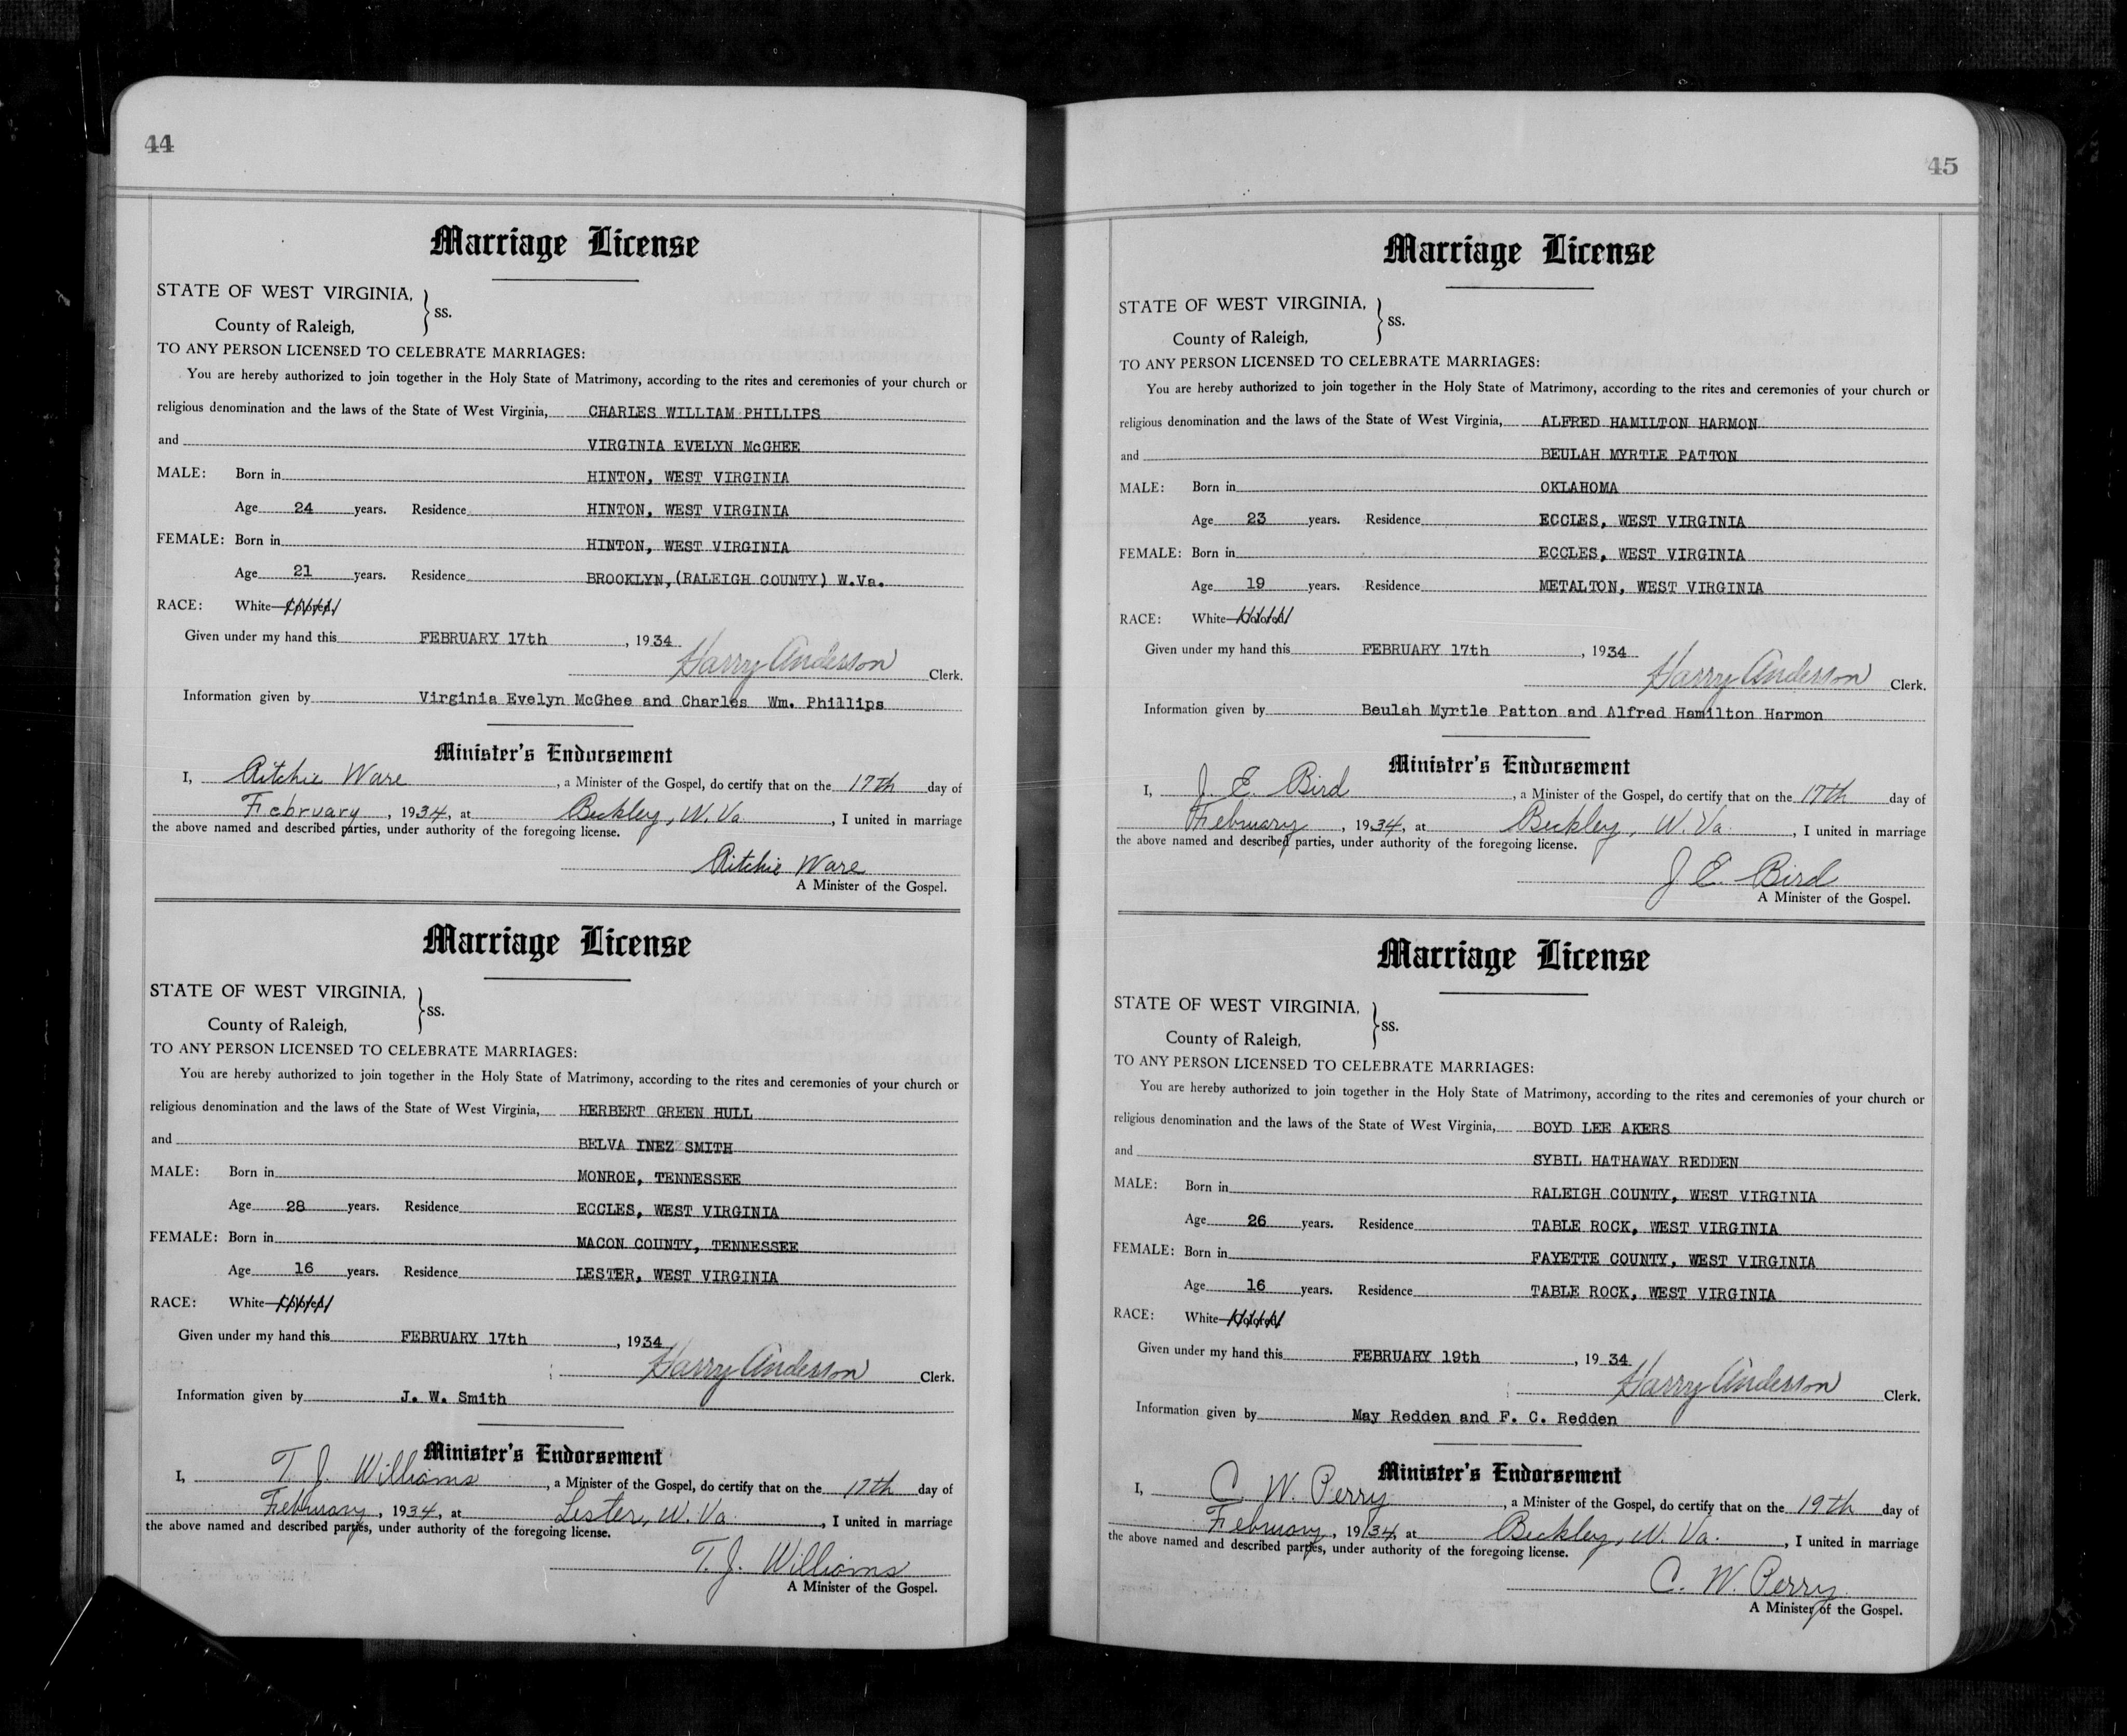 44
Marriage License
STATE OF WEST VIRGINIA,
County of Raleigh, } ss.
TO ANY PERSON LICENSED TO CELEBRATE MARRIAGES:
You are hereby authorized to join together in the Holy State of Matrimony, according to the rites and ceremonies of your church or
religious denomination and the laws of the State of West Virginia, CHARLES WILLIAM PHILLIPS
and VIRGINIA EVELYN McGHEE
MALE: Born in HINTON, WEST VIRGINIA
Age 24 years. Residence HINTON, WEST VIRGINIA
FEMALE: Born in HINTON, WEST VIRGINIA
Age 21 years. Residence BROOKLYN,(RALEIGH COUNTY) W.Va.
RACE: White—Colored.
Given under my hand this FEBRUARY 17th, 1934
Harry Anderson Clerk.
Information given by Virginia Evelyn McGhee and Charles Wm. Phillips
Minister's Endorsement
I, Ritchie Ware, a Minister of the Gospel, do certify that on the 17th day of
February, 1934, at Beckley, W. Va., I united in marriage
the above named and described parties, under authority of the foregoing license.
Ritchie Ware
A Minister of the Gospel.
Marriage License
STATE OF WEST VIRGINIA,
County of Raleigh, } ss.
TO ANY PERSON LICENSED TO CELEBRATE MARRIAGES:
You are hereby authorized to join together in the Holy State of Matrimony, according to the rites and ceremonies of your church or
religious denomination and the laws of the State of West Virginia, HERBERT GREEN HULL
and BELVA INEZ SMITH
MALE: Born in MONROE, TENNESSEE
Age 28 years. Residence ECCLES, WEST VIRGINIA
FEMALE: Born in MACON COUNTY, TENNESSEE
Age 16 years. Residence LESTER, WEST VIRGINIA
RACE: White—Colored.
Given under my hand this FEBRUARY 17th, 1934
Harry Anderson Clerk.
Information given by J. W. Smith
Minister's Endorsement
I, T. J. Williams, a Minister of the Gospel, do certify that on the 17th day of
February, 1934, at Lester, W. Va., I united in marriage
the above named and described parties, under authority of the foregoing license.
T. J. Williams
A Minister of the Gospel.
45
Marriage License
STATE OF WEST VIRGINIA,
County of Raleigh, } ss.
TO ANY PERSON LICENSED TO CELEBRATE MARRIAGES:
You are hereby authorized to join together in the Holy State of Matrimony, according to the rites and ceremonies of your church or
religious denomination and the laws of the State of West Virginia, ALFRED HAMILTON HARMON
and BEULAH MYRTLE PATTON
MALE: Born in OKLAHOMA
Age 23 years. Residence ECCLES, WEST VIRGINIA
FEMALE: Born in ECCLES, WEST VIRGINIA
Age 19 years. Residence METALTON, WEST VIRGINIA
RACE: White—Colored.
Given under my hand this FEBRUARY 17th, 1934
Harry Anderson Clerk.
Information given by Beulah Myrtle Patton and Alfred Hamilton Harmon
Minister's Endorsement
I, J. E. Bird, a Minister of the Gospel, do certify that on the 17th day of
February, 1934, at Beckley, W. Va., I united in marriage
the above named and described parties, under authority of the foregoing license.
J E. Bird
A Minister of the Gospel.
Marriage License
STATE OF WEST VIRGINIA,
County of Raleigh, } ss.
TO ANY PERSON LICENSED TO CELEBRATE MARRIAGES:
You are hereby authorized to join together in the Holy State of Matrimony, according to the rites and ceremonies of your church or
religious denomination and the laws of the State of West Virginia, BOYD LEE AKERS
and SYBIL HATHAWAY REDDEN
MALE: Born in RALEIGH COUNTY, WEST VIRGINIA
Age 26 years. Residence TABLE ROCK, WEST VIRGINIA
FEMALE: Born in FAYETTE COUNTY, WEST VIRGINIA
Age 16 years. Residence TABLE ROCK, WEST VIRGINIA
RACE: White—Colored.
Given under my hand this FEBRUARY 19th, 1934
Harry Anderson Clerk.
Information given by May Redden and F. C. Redden
Minister's Endorsement
I, C. W. Perry, a Minister of the Gospel, do certify that on the 19th day of
February, 1934, at Beckley, W. Va., I united in marriage
the above named and described parties, under authority of the foregoing license.
C. W. Perry
A Minister of the Gospel.